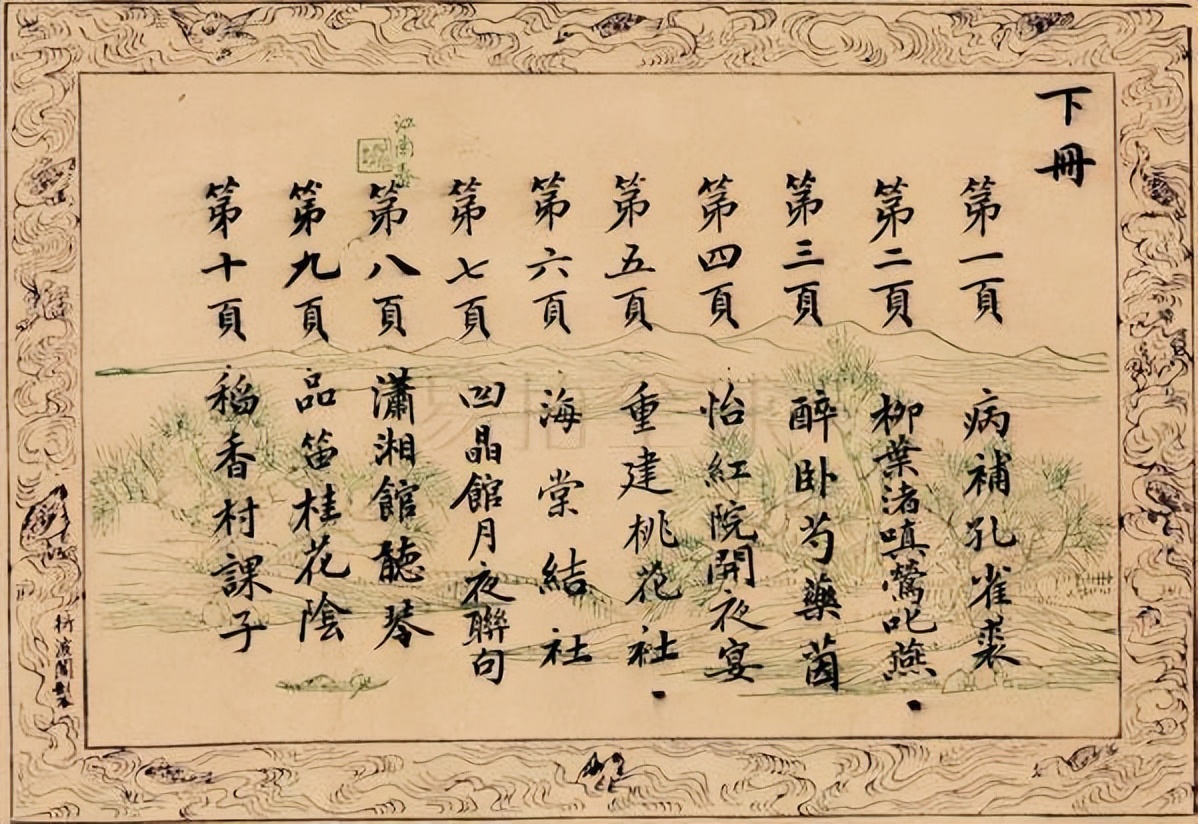 下冊
第一頁 病補孔雀裘
第二頁 柳葉渚嗔鶯叱燕
第三頁 醉卧芍藥茵
第四頁 怡紅院開夜宴
第五頁 重建桃花社
第六頁 海棠結社
第七頁 凹晶館月夜聯句
第八頁 瀟湘館聽琴
第九頁 品笛桂花陰
第十頁 稻香村課子
江南春